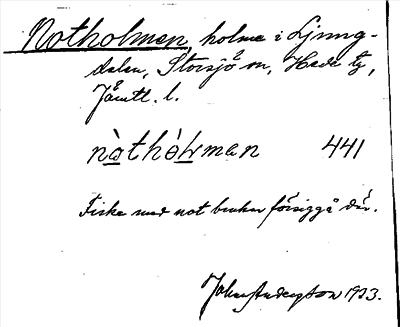 Notholmen, holme i Ljung-
dalen, Storsjö sn, Hede tg,
Jämtl. l.
nòthólmen 441
Fiske med not brukar försiggå där.
John Anderzon 1933.